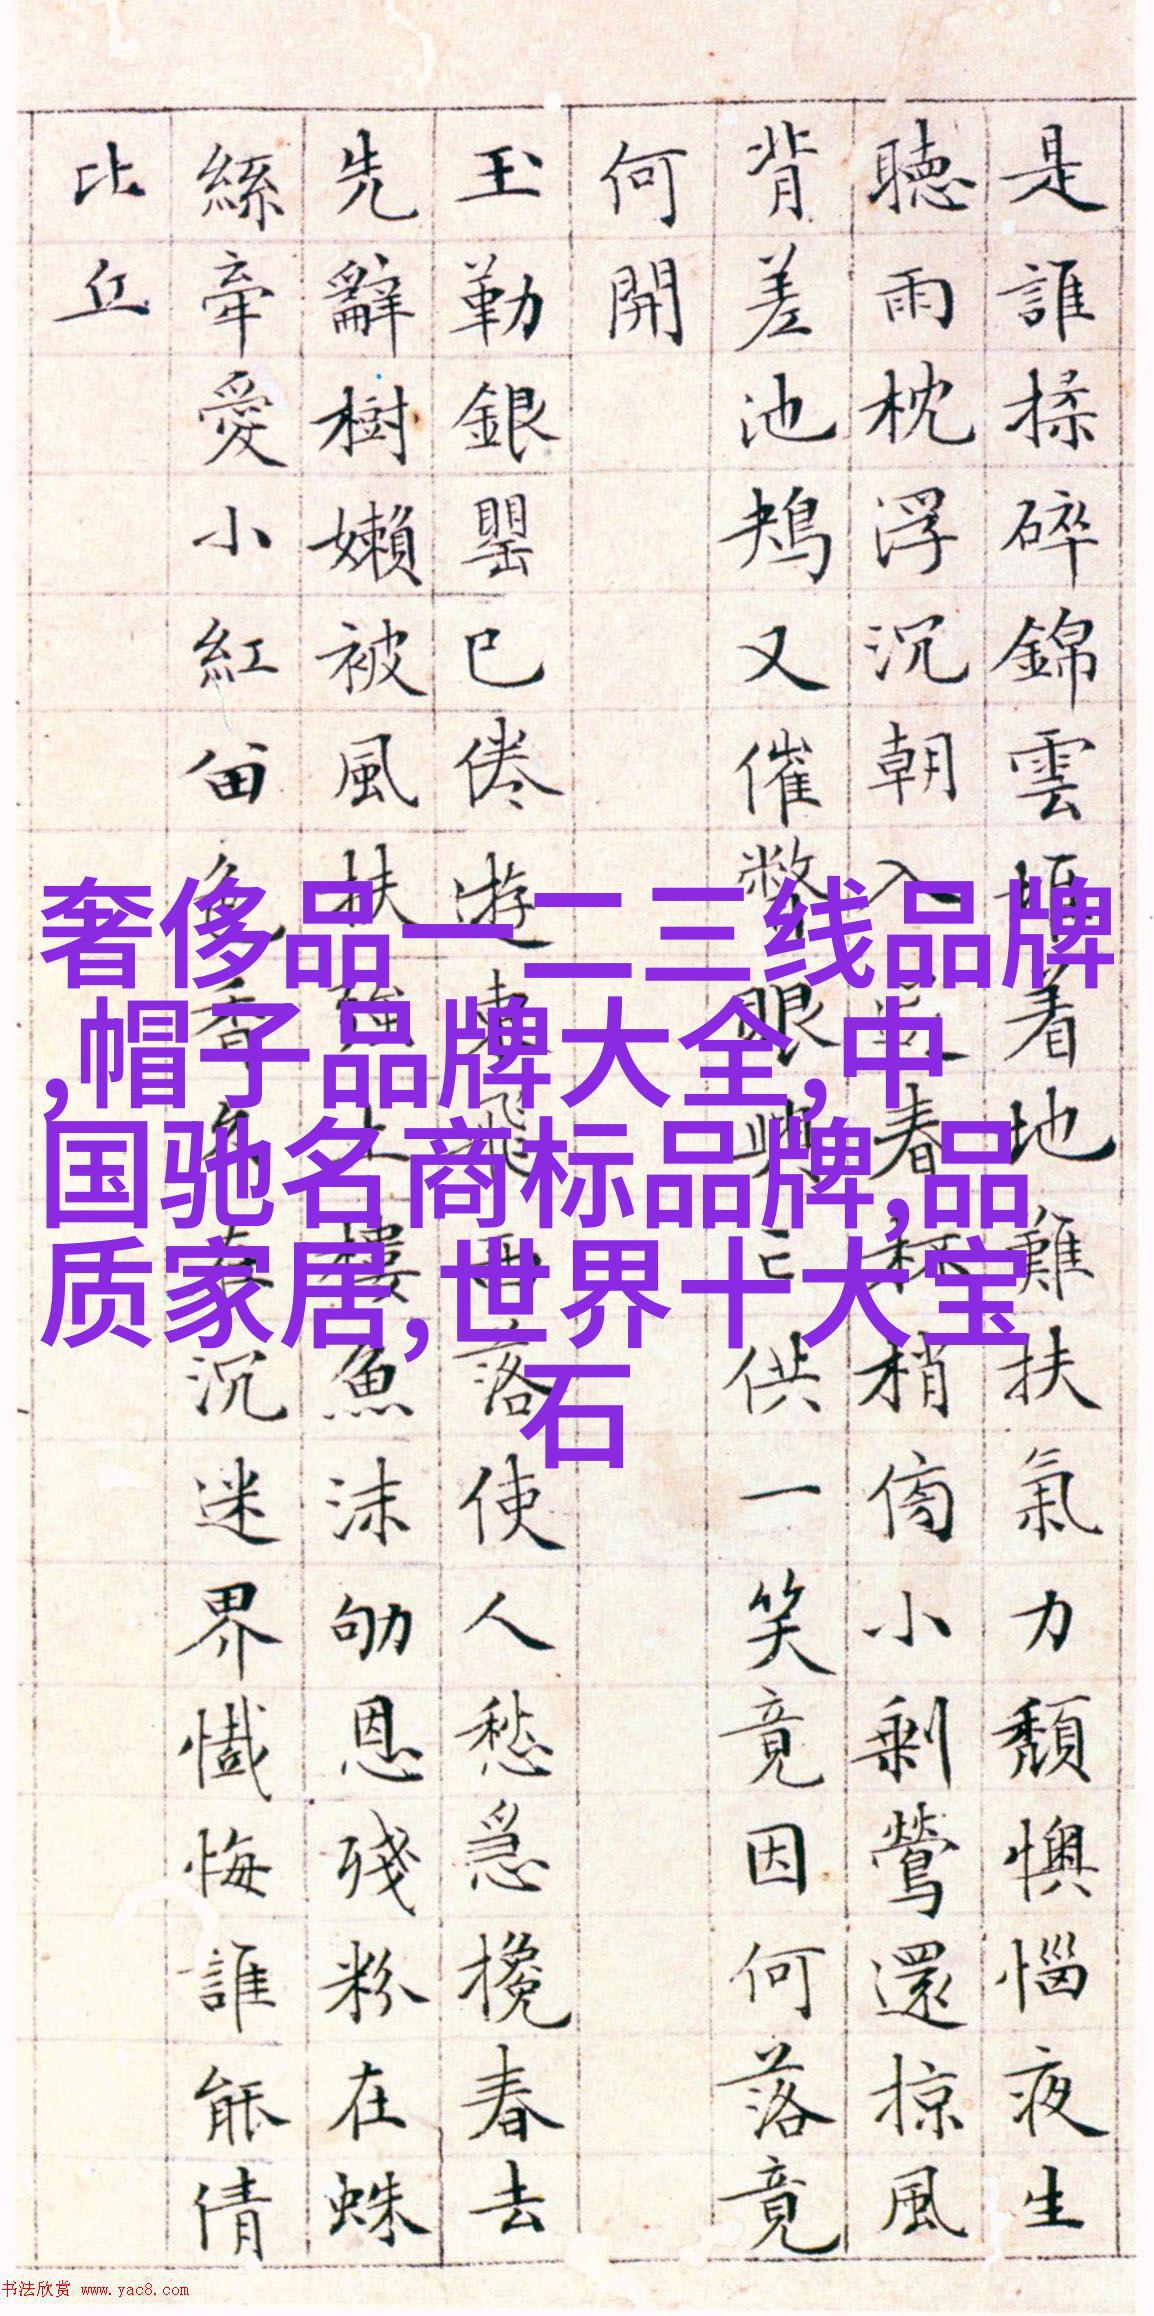 是誰揉碎錦雲堆着地難扶氣力頹懊惱夜生
聽雨枕浮沉朝入春杯梢小剩鶯還掠風
背差池鴂又催眼亡供一笑竟因何落竟
何開
玉勒銀罌已倦遊東飛西落使人愁急攙春去
先辭樹嬾被風扶強上樓魚沫劬恩殘粉在蛛
絲牽愛小紅留色香久在沉迷界懺悔誰能倩
比丘
奢侈品一二三线品牌
,帽子品牌大全,中
国驰名商标品牌,品
质家居,世界十大宝
石
书法欣赏 www.yac8.com